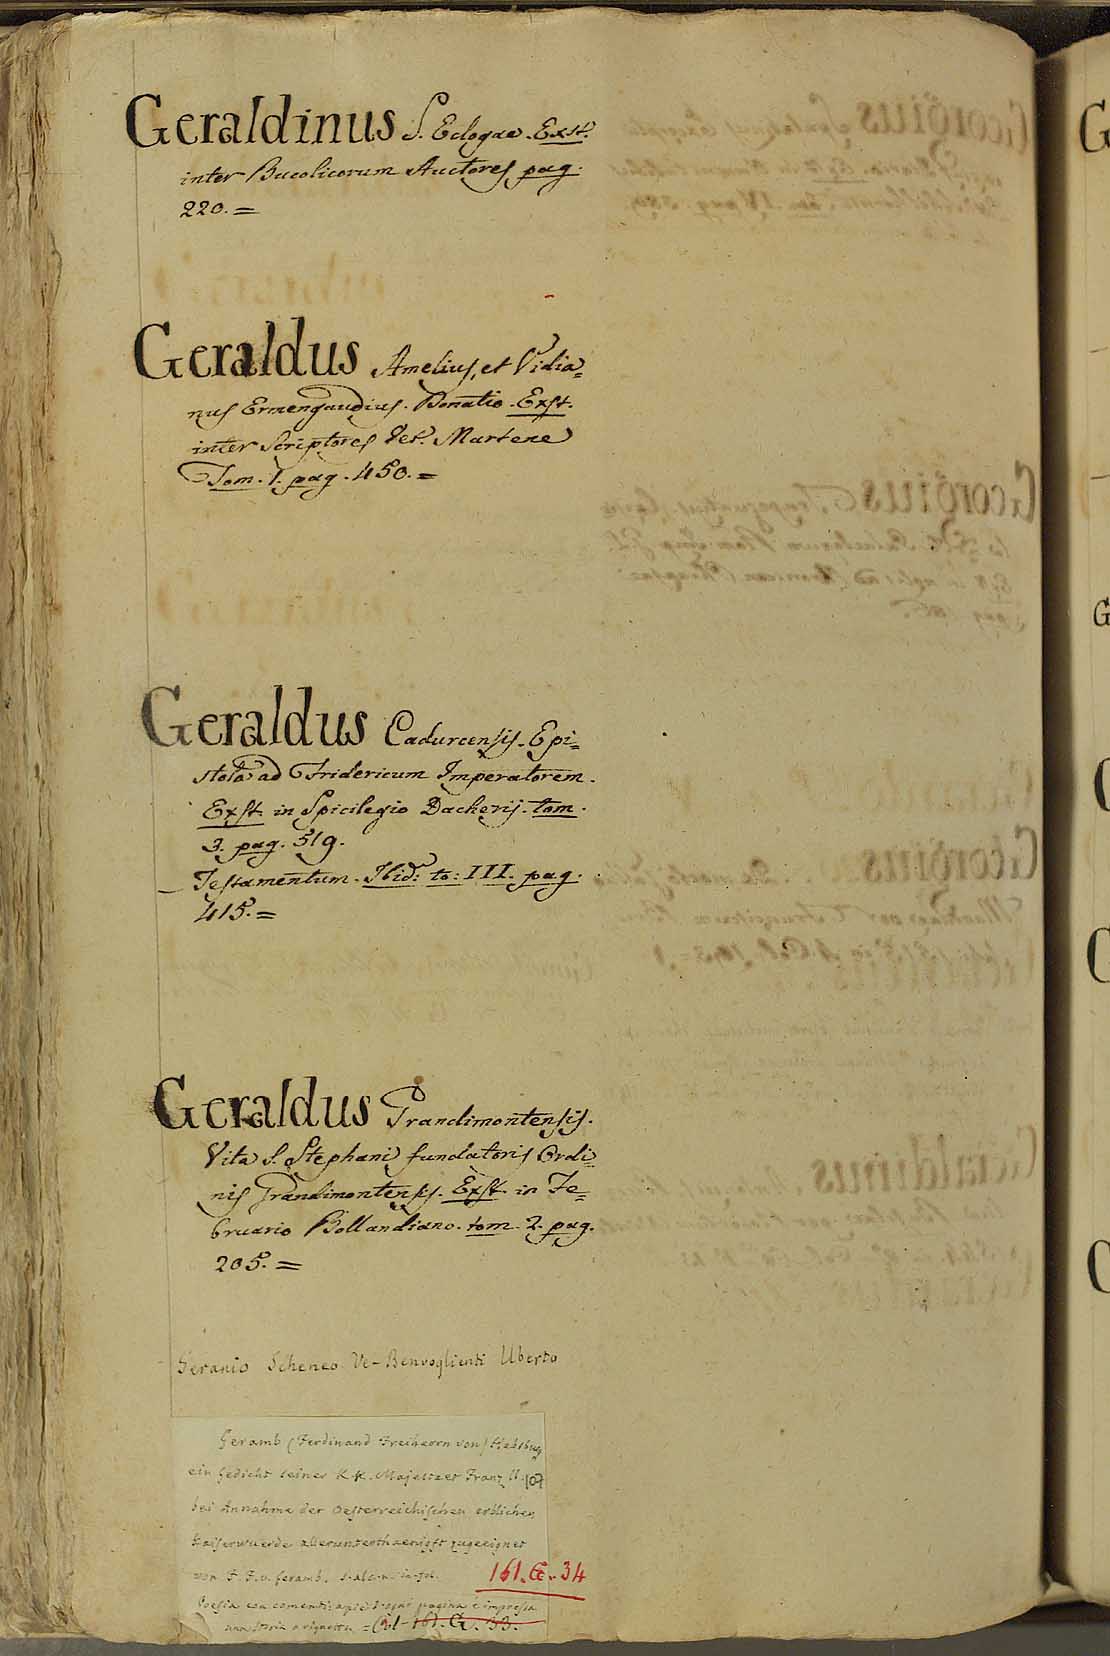 Geraldinus S. Eclogae. Exst.
inter Bucolicorum Auctores pag:
220.=
Geraldus Amelius, et Vidia=
nus Ermengaudius. Donatio. Exst.
inter Scriptores Vet. Martene
Tom. 1. pag. 450.=
Geraldus Cadurcensis. Epi=
stola ad Fridericum Imperatorem.
Exst. in Spicilegio Dacherij. tom.
3. pag. 519.
_ Testamentum. Ibid: to: III. pag.
415.=
Geraldus Grandimontensis.
Vita S. Stephani fundatoris Ordi=
nis Grandimontensis. Exst. in Fe=
bruario Bollandiano. tom. 2. pag.
205.=
Geranio Scheneo Ve- Benvoglienti Uberto
Geramb (Ferdinand Freiherrn von) Habsburg
ein Gedicht seiner K.K. Majestaet Franz II.
bei Annahme der Oesterreichischen erblichen
Kaiserwuerde allerunterthaenigst zugeeignet
von F. F. v. Geramb. in fol. 161. G. 34
Poesia con pagina è impressa
una 161. G. 33.